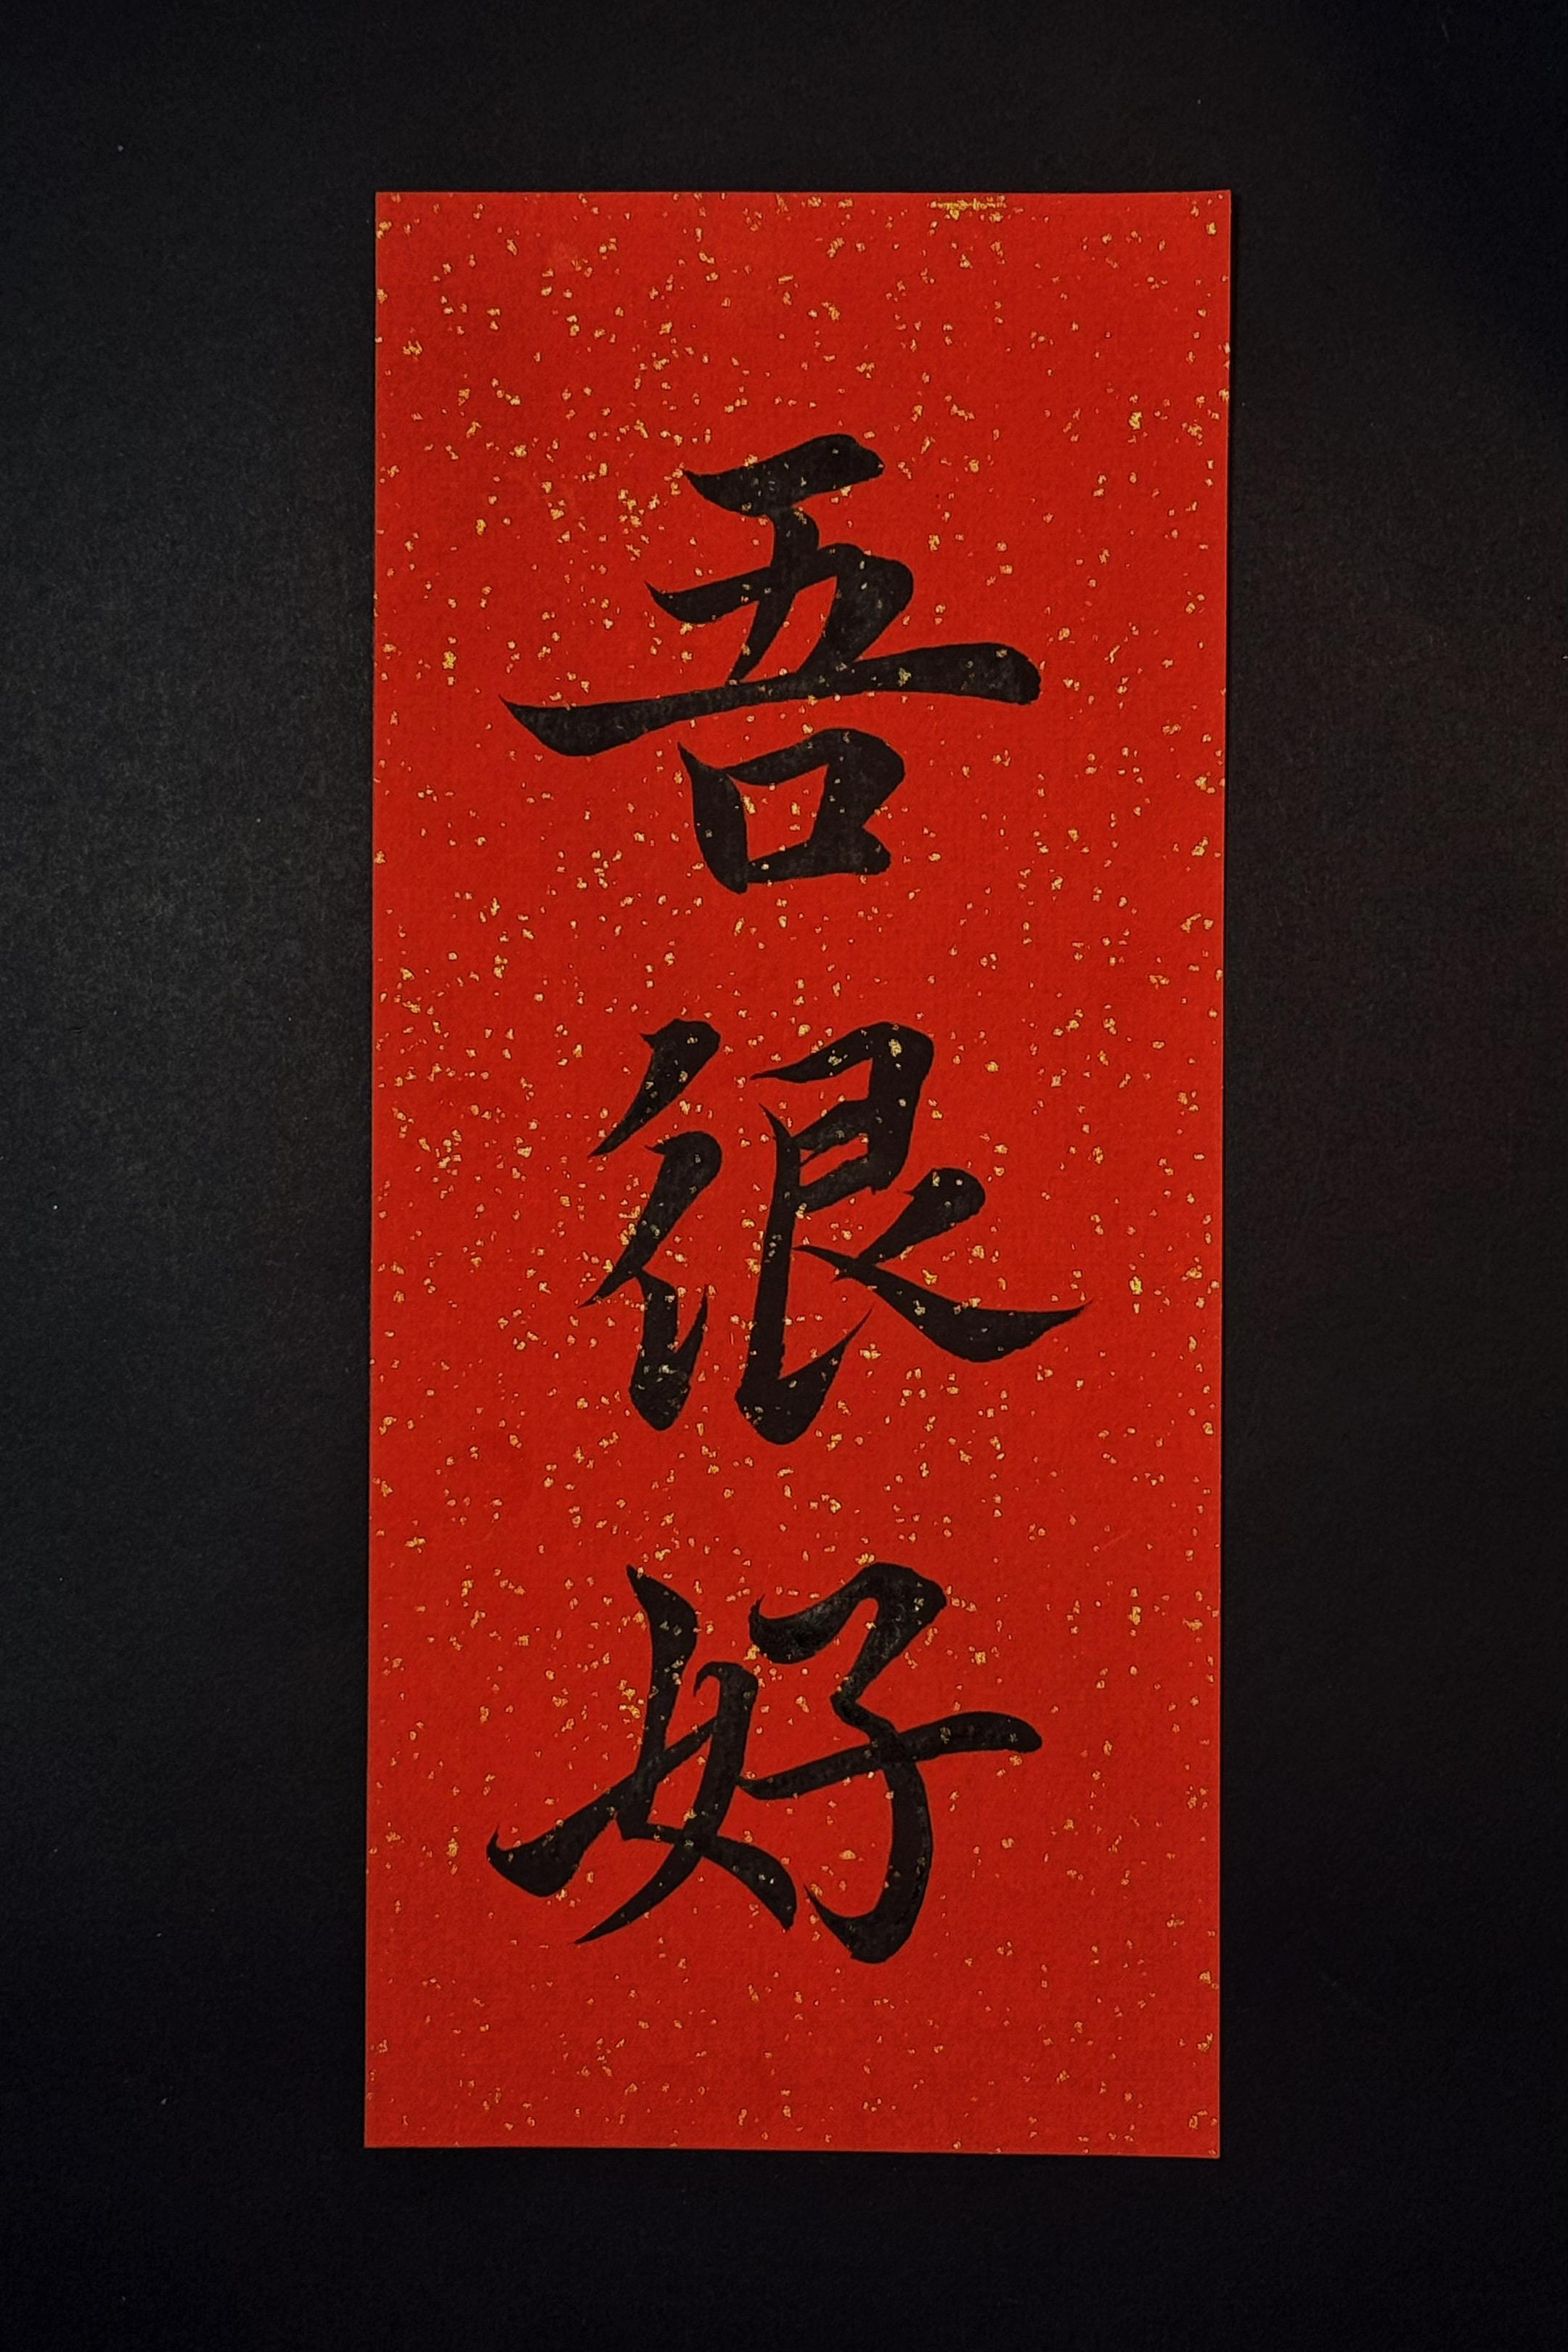 吾很好